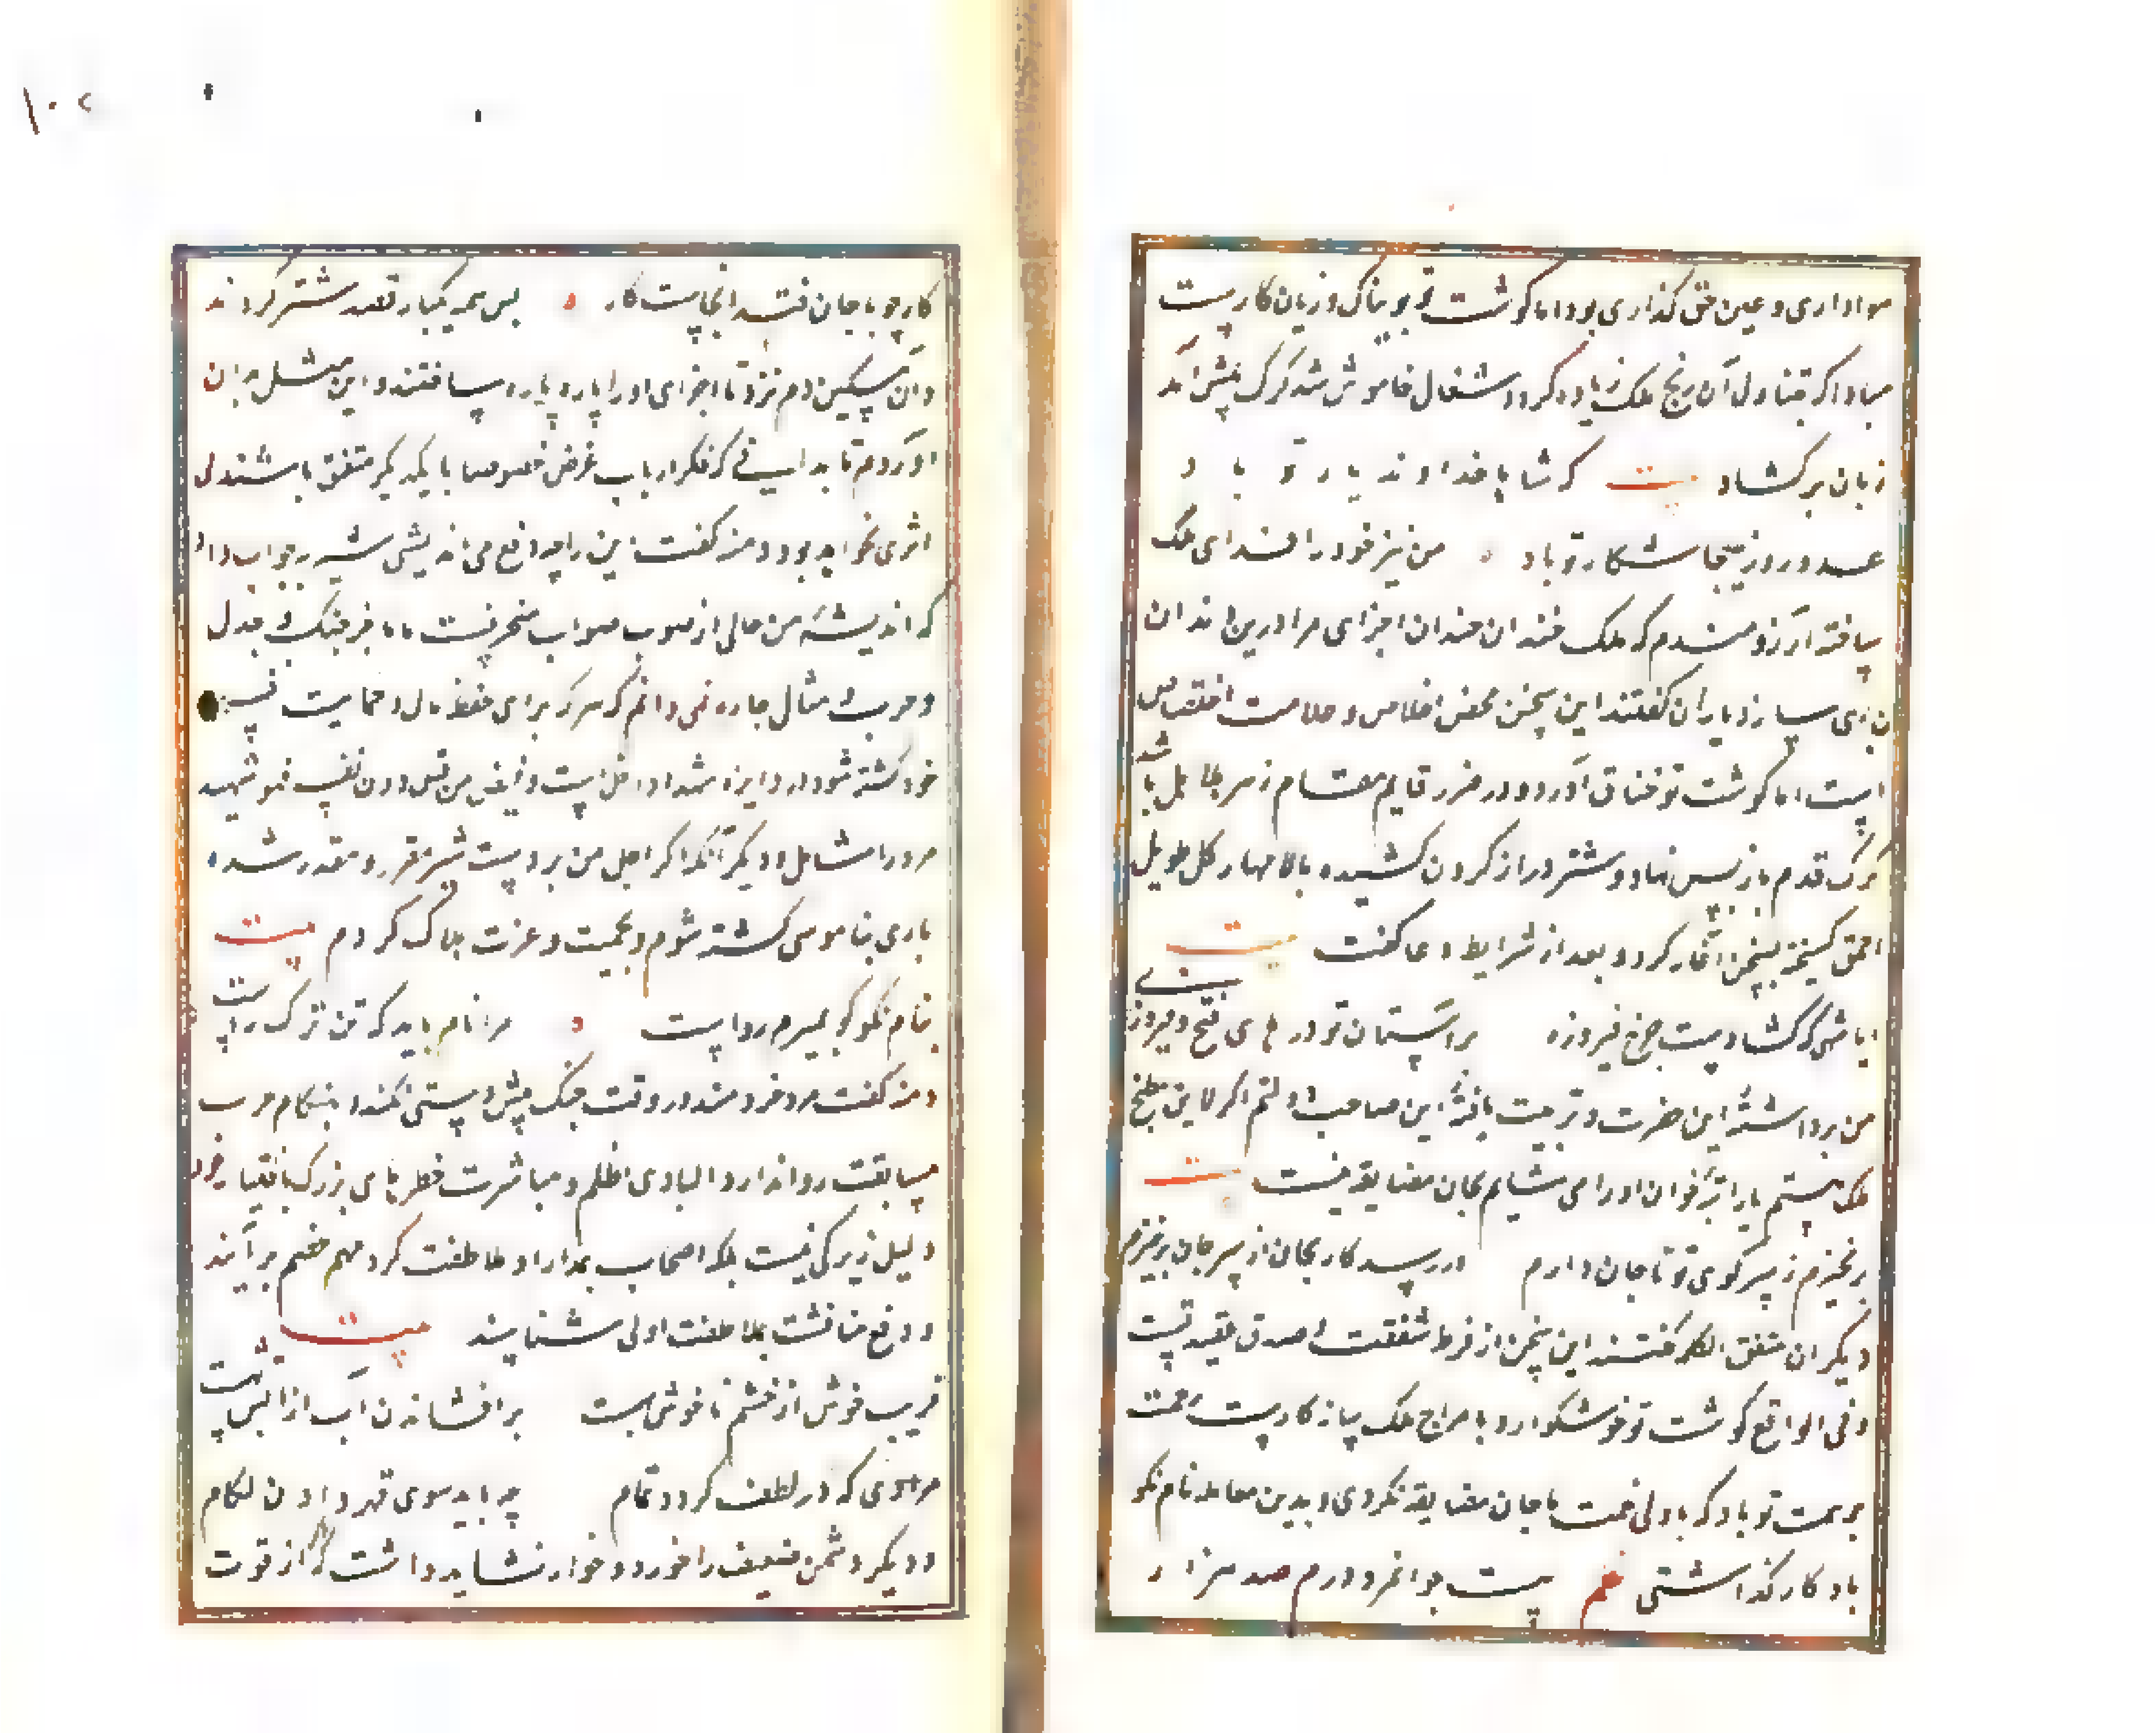 هواداری و عین حق گذاری بود اما گوشت تو بویناک و زیان کارست
مبادا که بتناول آن رنج ملک زیاده گردد شغال خاموش شد گرگ پیش آمد
زبان برگشاد بیت که شاها خداوند یار تو باد
عدو روز هیجا شکار تو باد من نیز خود را فدای ملک
ساخته آرزومندم که ملک خندان خندان اجزای مرا در بن دندان
جای سازد یاران گفتند این سخن محض اخلاص و علامت اختصاص
است اما گوشت تو خناق آورد و در ضرر قایم مقام زهر هلاهل باشد
گرگ قدم باز پس نهاد و شتر دراز گردن کشیده بالا بهار کل طویل
احمق گسیخته سخن آغاز کرد و بعد از شرایط دعا گفت بیت
ایا شهی که گشادست چرخ فیروزه بر آستان تو درهای فتح و فیروزی
من برداشتهٔ این حضرت و تربیت یافتهٔ این صاحب دولتم اگر لایق مطبخ
ملک هستم یا راتبهٔ خوان او را می شایم بجان مضایقه نیست بیت
برنخیزم ز سر کوی تو تا جان دارم ور رسد کار بجان از سر جان برخیزم
دیگران متفق الکلمه گفتند این سخن از فرط شفقت و صدق عقیدتست
و فی الواقع گوشت تو خوشگوار و با مزاج ملک سازگارست رحمت
بر همت تو باد که با ولی نعمت بجان مضایقه نکردی و بدین معامله نام نکو
یادگار گذاشتی نظم هست جوانمرد درم صد هزار
کار چو با جان فتد آنجاست کار پس همه یکبار قصد شتر کردند
و آن مسکین دم نزد تا اجزای او را پاره پاره ساختند و این مثل بدان
آوردم تا بدانی که فکر ارباب غرض خصوصا با یکدیگر متفق باشند بی
اثری نخواهد بود دمنه گفت این را چه دفع می اندیشی شنزبه جواب داد
که اندیشهٔ من حالی از صوب صواب منحرفست اما بجز جنگ و جدل
و حرب و قتال چاره نمی دانم که هر که برای حفظ مال و حمایت نفس
خود کشته شود در دایره شهدا داخل است و فیض من قتل دون نفسه فهو شهید
مر او را شامل و دیگر آنکه اگر اجل من بر دست شیر مقرر و مقدر شده
باری بناموس کشته شوم و بحمیت و عزت هلاک گردم بیت
بنام نکو گر بمیرم رواست مرا نام باید که تن مرگ راست
دمنه گفت مرد خردمند در وقت جنگ پیش دستی نکند و هنگام حرب
مسابقت روا ندارد البادی اظلم و مباشرت خطرهای بزرگ باختیار خود
دلیل زیرکی نیست بلکه اصحاب بمدارا و ملاطفت گرد مهم خصم برآیند
و دفع مناقشت بملاطفت اولی شناسند بیت
فریب خوش از خشم ناخوش بهست برافشاندن آب از آتش بهست
مرادی که در لطف گردد تمام چه باید سوی قهر دادن لگام
و دیگر دشمن ضعیف را خورد و خوار نشاید داشت که اگر از قوت